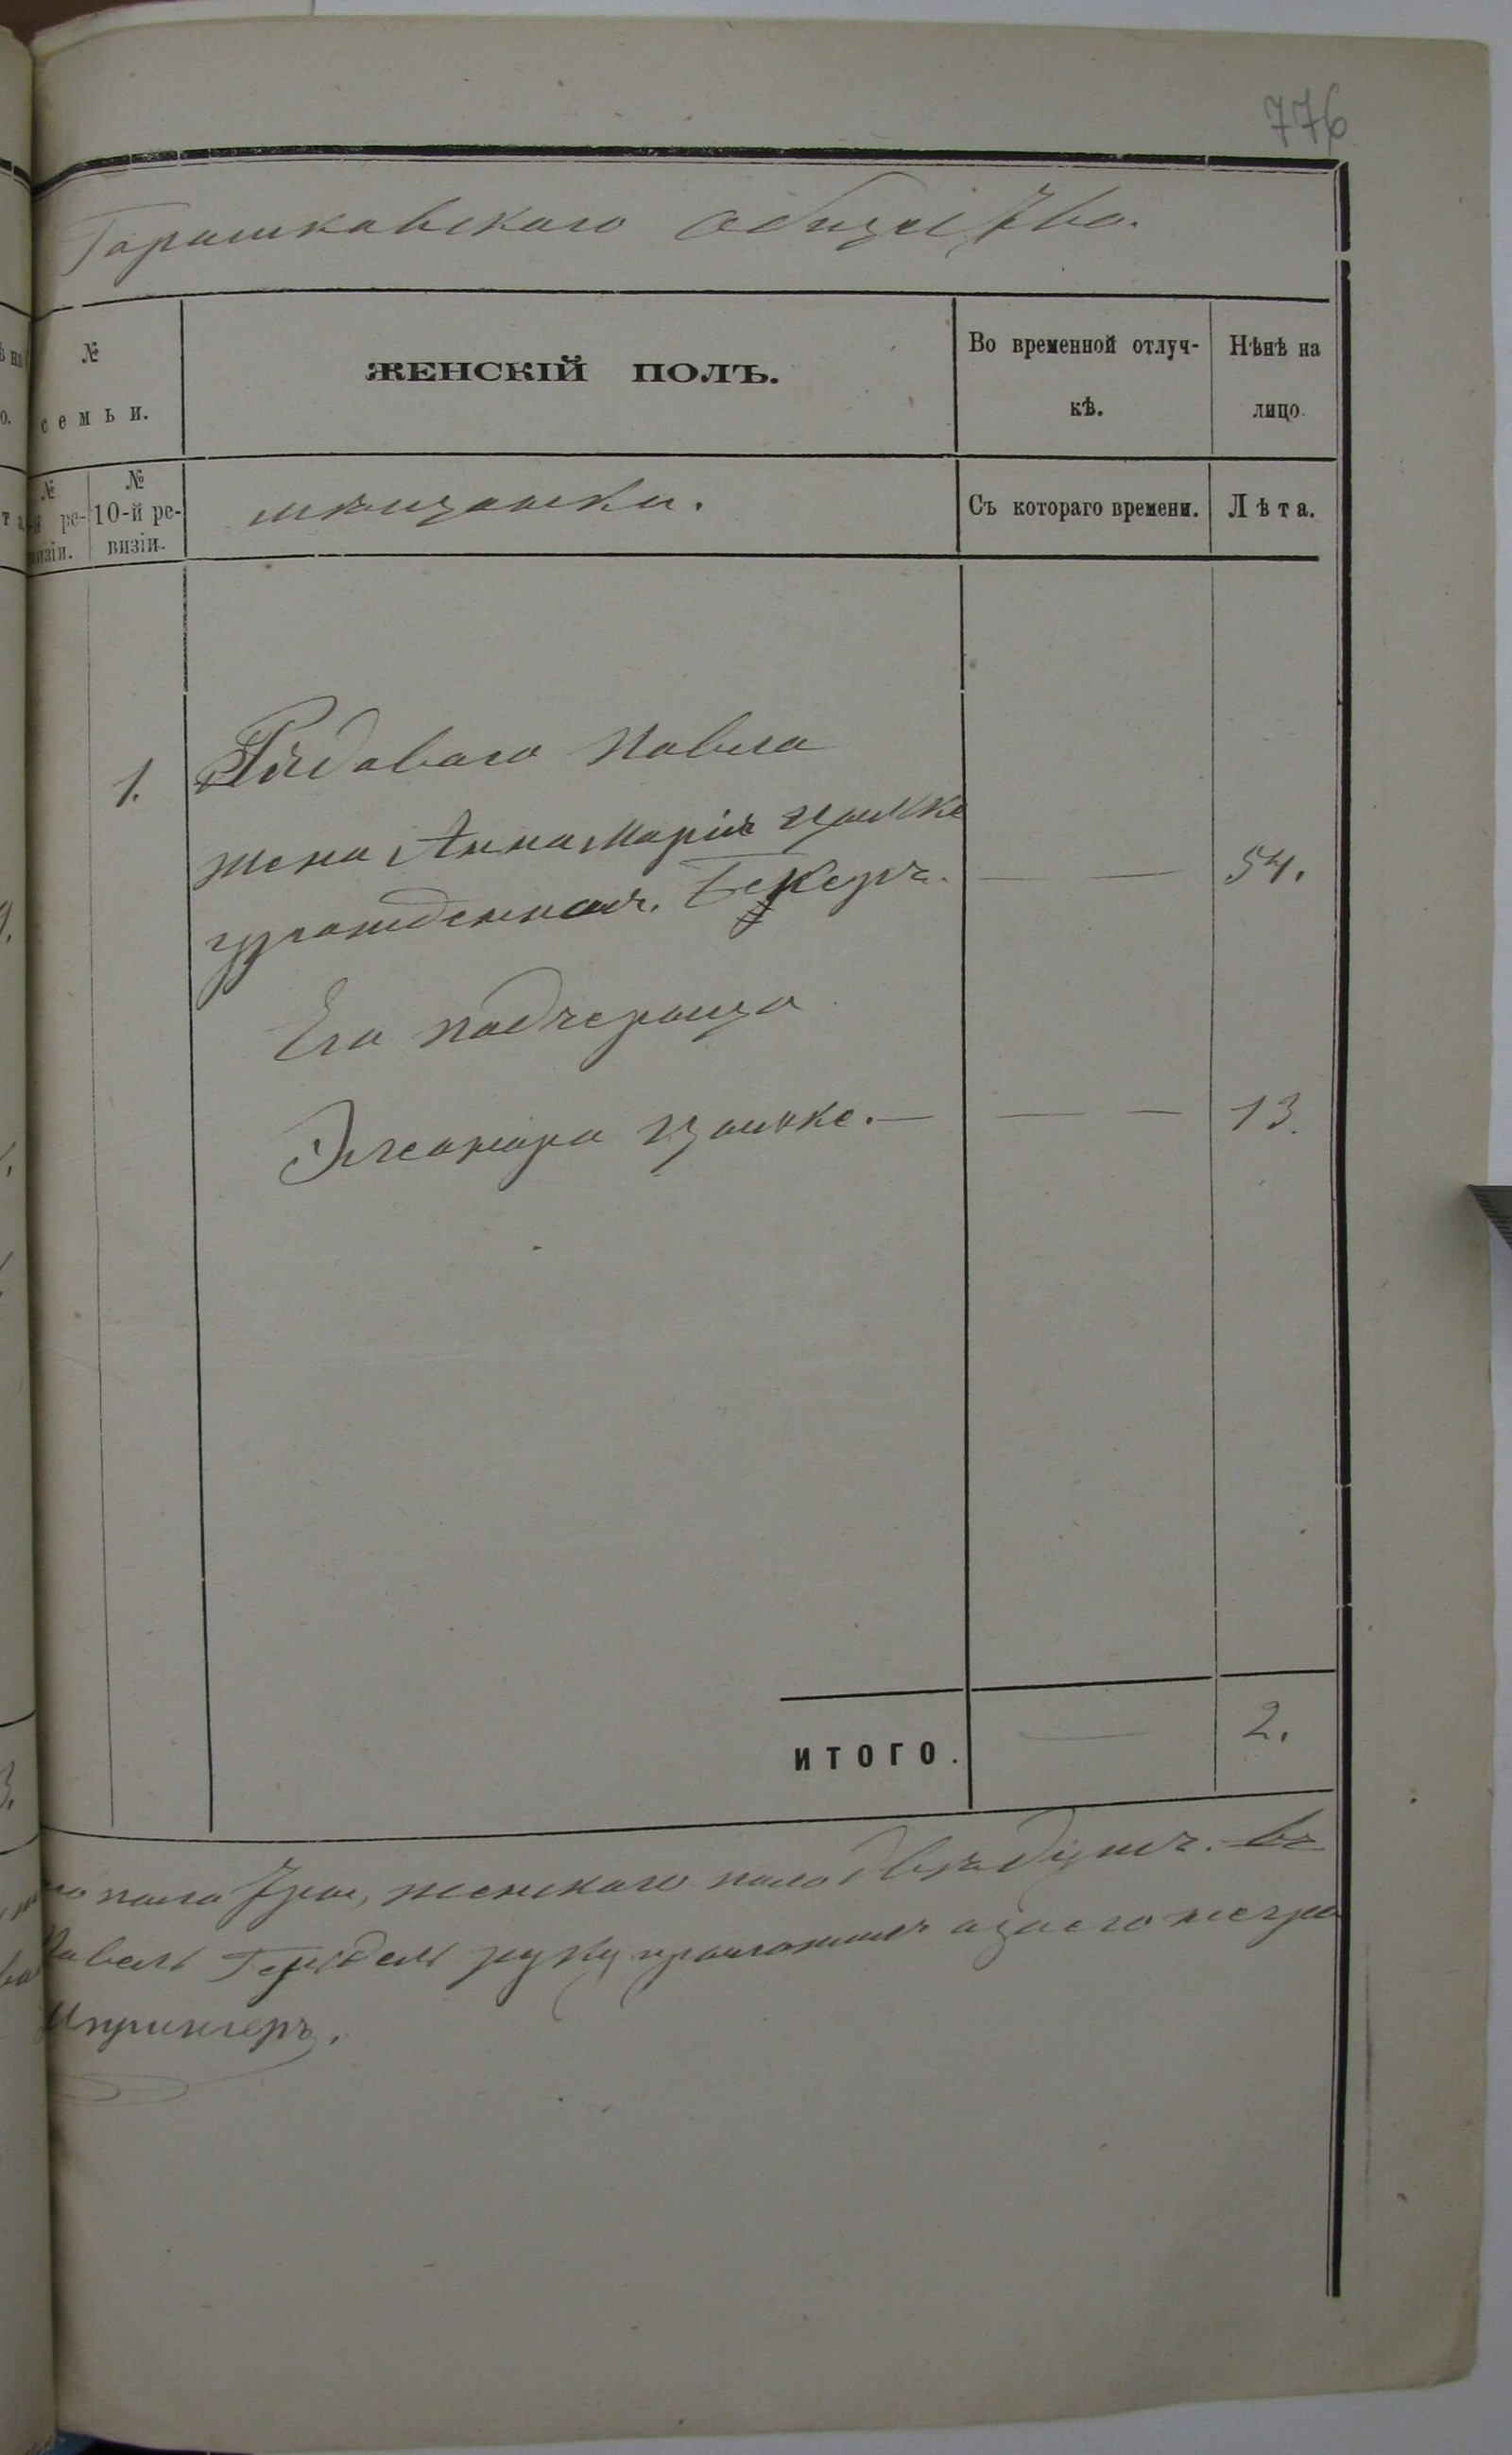 776
Гаришкавскаго общества.
№
семьи.
ЖЕНСКІЙ ПОЛЪ.
Во временной отлуч-
кѣ.
Нѣнѣ на
лицо.
№
й ре-
визіи.
№
10-й ре-
визіи.
мѣщанки.
Съ котораго времени.
Лѣта.
1. Рядоваго Павла
жена Анна Марія Цацке
урожденная. Бекеръ. — — 54.
Его падчерица
Элеанора Цацке. — — — 13.
ИТОГО. — 2.
пола три, женскаго пола двѣ души. въ
Павелъ руку приложилъ а за его неграм
Шпрингеръ.